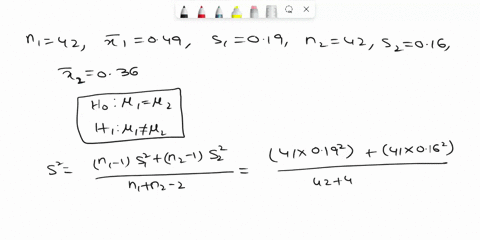 n₁=42, x̄₁=0.49, S₁=0.19, n₂=42, S₂=0.16,
x̄₂=0.36
H₀: μ₁=μ₂
H₁: μ₁≠μ₂
S² = (n₁-1) S₁² + (n₂-1) S₂² / n₁+n₂-2 = (41×0.19²) + (41×0.16²) / 42+4